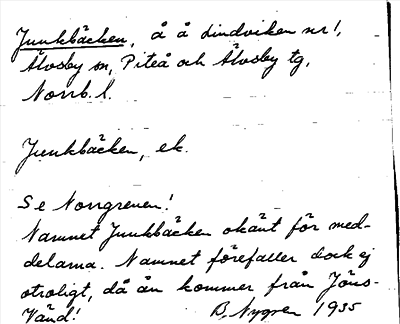 Junkbäcken, å å Lindviken nr 1,
Älvsby sn, Piteå och Älvsby tg,
Norrb. l.
Junkbäcken, ek.
Se Norrgrenen!
Namnet Junkbäcken okänt för med-
delarna. Namnet förefaller dock ej
otroligt, då ån kommer från Jöns-
Vänd!
B. Nygren 1935